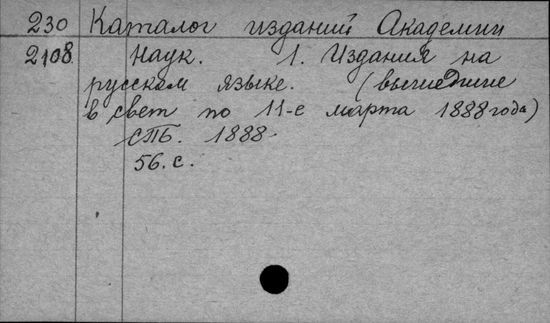 230 Каталог изданий Академии
2108 Наук. 1. Издания на
русском языке. (вышедшие
в свет по 11-е марта 1888 года)
СПБ. 1888.
56. с.